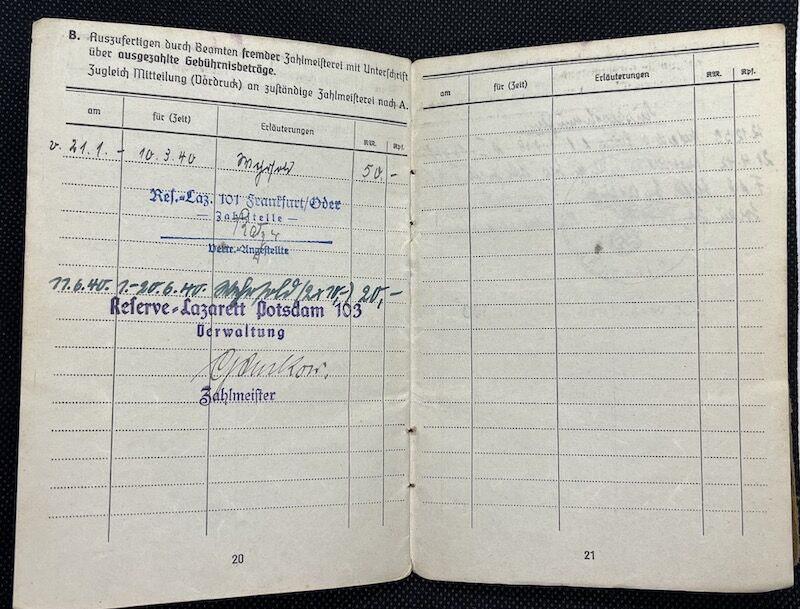 B. Auszufertigen durch Beamten fremder Zahlmeisterei mit Unterschrift
über ausgezahlte Gebührnisbeträge.
Zugleich Mitteilung (Vordruck) an zuständige Zahlmeisterei nach A.
am für (Zeit) Erläuterungen RM. Rpf.
v. 21.1. – 10.3.40 Wehrsold 50.–
Res.-Laz. 101 Frankfurt/Oder
— Zahlstelle —
Verw.-Angestellte
11.6.40. 1.–20.6.40. Wehrsold (2x10,-) 20,–
Reserve-Lazarett Potsdam 103
Verwaltung
Zahlmeister
20
am für (Zeit) Erläuterungen RM. Rpf.
21